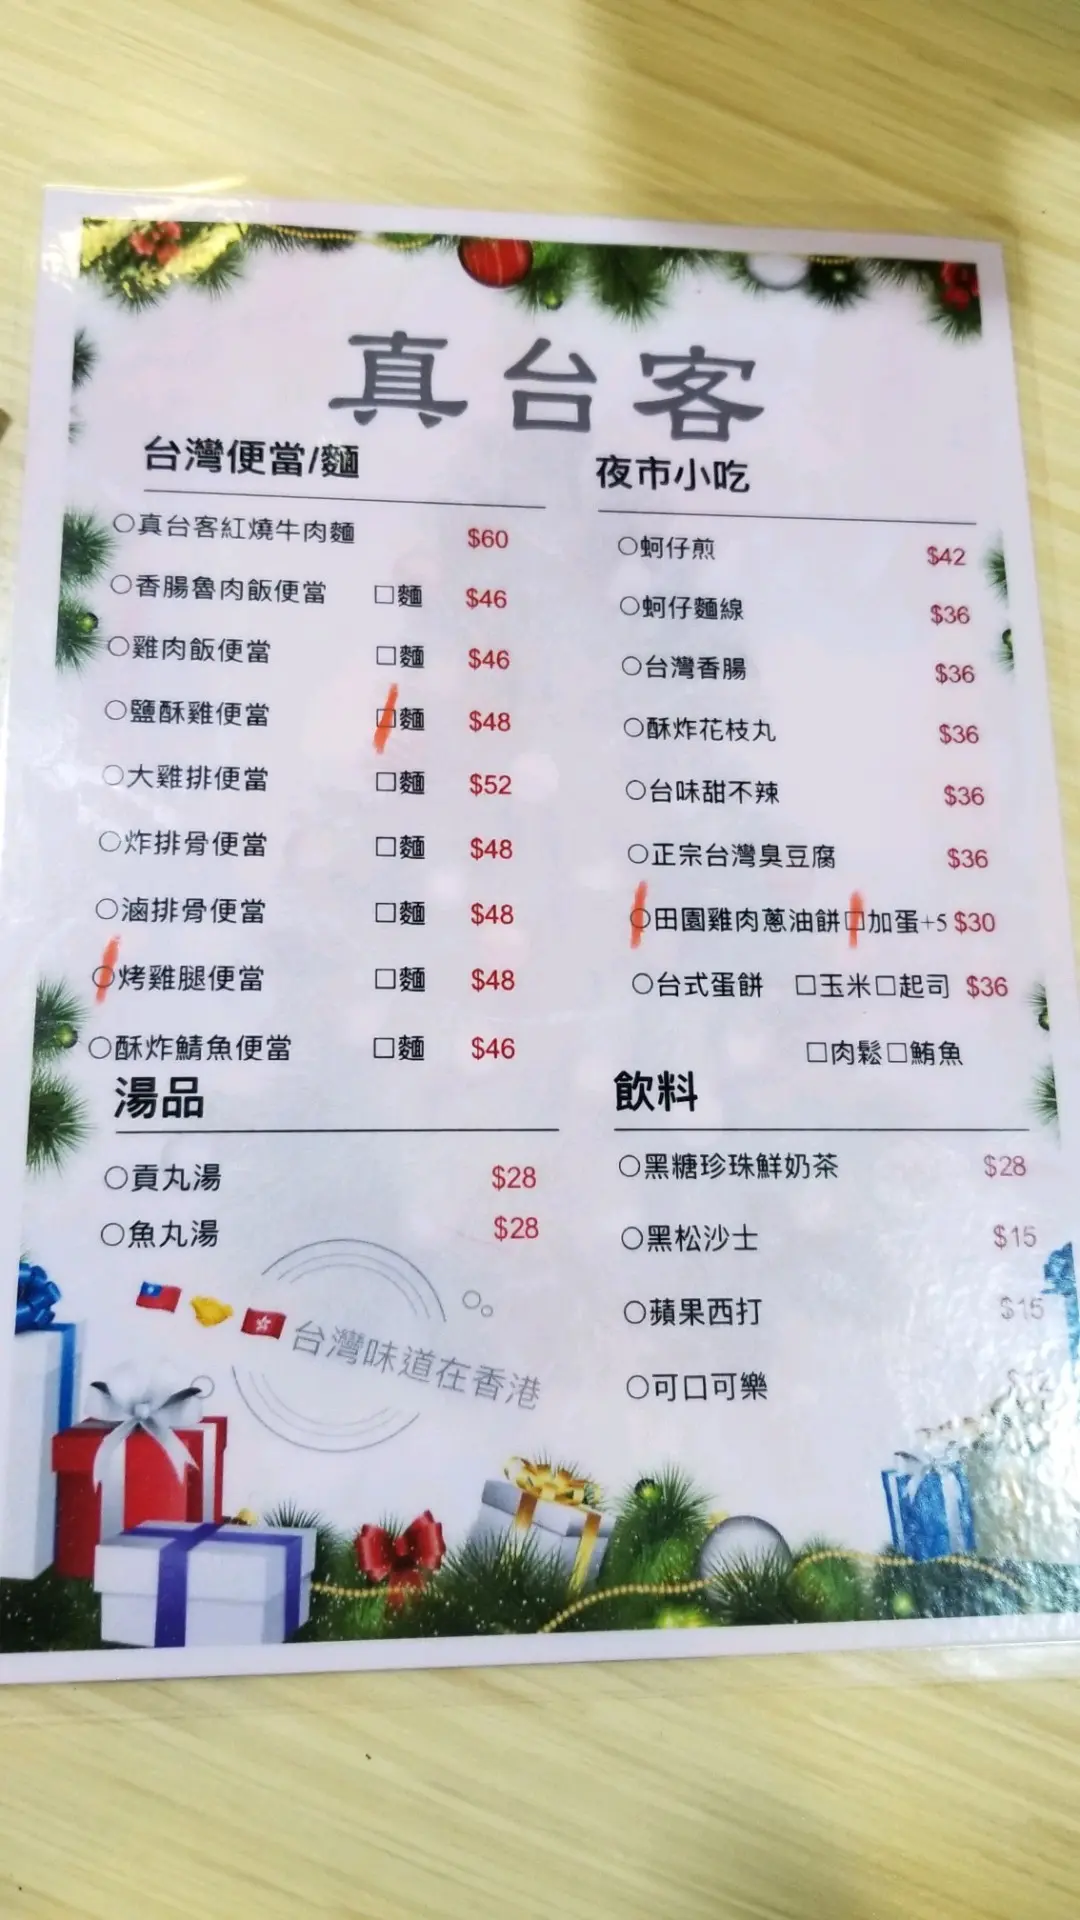 真台客
台灣便當/麵
○真台客紅燒牛肉麵 $60
○香腸魯肉飯便當 □麵 $46
○雞肉飯便當 □麵 $46
○鹽酥雞便當 □麵 $48
○大雞排便當 □麵 $52
○炸排骨便當 □麵 $48
○滷排骨便當 □麵 $48
○烤雞腿便當 □麵 $48
○酥炸鯖魚便當 □麵 $46
湯品
○貢丸湯 $28
○魚丸湯 $28
台灣味道在香港
夜市小吃
○蚵仔煎 $42
○蚵仔麵線 $36
○台灣香腸 $36
○酥炸花枝丸 $36
○台味甜不辣 $36
○正宗台灣臭豆腐 $36
○田園雞肉蔥油餅□加蛋+5 $30
○台式蛋餅 □玉米□起司 $36
□肉鬆□鮪魚
飲料
○黑糖珍珠鮮奶茶 $28
○黑松沙士 $15
○蘋果西打 $15
○可口可樂 $12